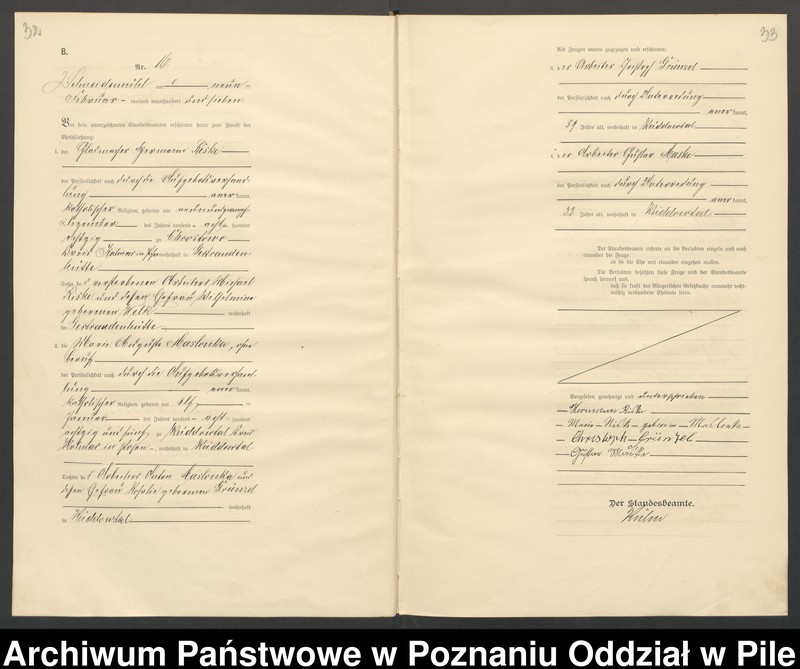 32
B.
Nr. 16
Schneidemühl am neun-
Februar tausend neunhundert und sieben
Vor dem unterzeichneten Standesbeamten erschienen heute zum Zwecke der
Eheschließung:
1. der Glasmacher Hermann Riske
der Persönlichkeit nach durch die Aufgebotsverhand-
lung anerkannt,
katholischer Religion, geboren am
Dezember des Jahres tausend acht hundert
achtzig zu
Kreis Kolmar in Posen wohnhaft in Gertrauden-
hütte
Sohn des verstorbenen Arbeiters Michael
Riske und dessen Ehefrau Wilhelmine
geborenen Welk wohnhaft
in Gertraudenhütte
2. die Marie Auguste Maslonka, ohne
Beruf
der Persönlichkeit nach durch die Aufgebotsverhand-
lung anerkannt,
katholischer Religion, geboren am elf-
Januar des Jahres tausend acht hundert
achtzig und fünf zu Küddowtal Kreis
Kolmar in Posen, wohnhaft in Küddowtal
Tochter des Arbeiters Anton Maslonka und
dessen Ehefrau Rosalie geborenen Grünzel
wohnhaft
in Küddowtal
33
Als Zeugen waren zugezogen und erschienen:
3. der Arbeiter Christoph Grünzel
der Persönlichkeit nach durch Unterredung
anerkannt,
59 Jahre alt, wohnhaft in Küddowtal
4. der Arbeiter Gustav Maske
der Persönlichkeit nach durch Unterredung
anerkannt,
32 Jahre alt, wohnhaft in Küddowtal
Der Standesbeamte richtete an die Verlobten einzeln und nach
einander die Frage:
ob sie die Ehe mit einander eingehen wollen.
Die Verlobten bejahten diese Frage und der Standesbeamte
sprach hierauf aus,
daß sie kraft des Bürgerlichen Gesetzbuchs nunmehr recht-
mäßig verbundene Eheleute seien.
Vorgelesen, genehmigt und unterschrieben
Hermann Riske
Marie Riske geborene Maslonka
Christoph Grünzel
Gustav Maske
Der Standesbeamte.
Archiwum Państwowe w Poznaniu Oddział w Pile